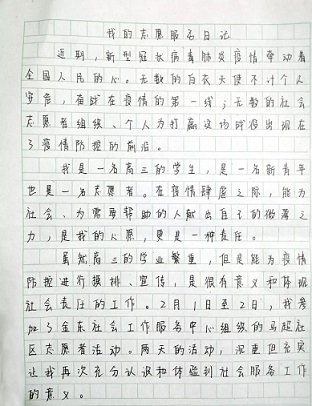 我的志愿服务日记
近期，新型冠状病毒肺炎疫情牵动着
全国人民的心。无数的白衣天使不计个人
安危，奋战在疫情的第一线；无数的社会
志愿者组织、个人为打赢这场战役出现在
了疫情防控的前沿。
我是一名高三的学生，是一名新青年
也是一名志愿者。在疫情肆虐之际，能为
社会、为需要帮助的人献出自己的微薄之
力，是我的心愿，更是一种责任。
虽然高三的学业繁重，但是能为疫情
防控进行摸排、宣传，是很有意义和体现
社会责任的工作。2月1日至2日，我参
加了金东社会工作服务中心组织的马超社
区志愿者活动。两天的活动，沉重但充实
让我再次充分认识和体验到社会服务工作
的意义。